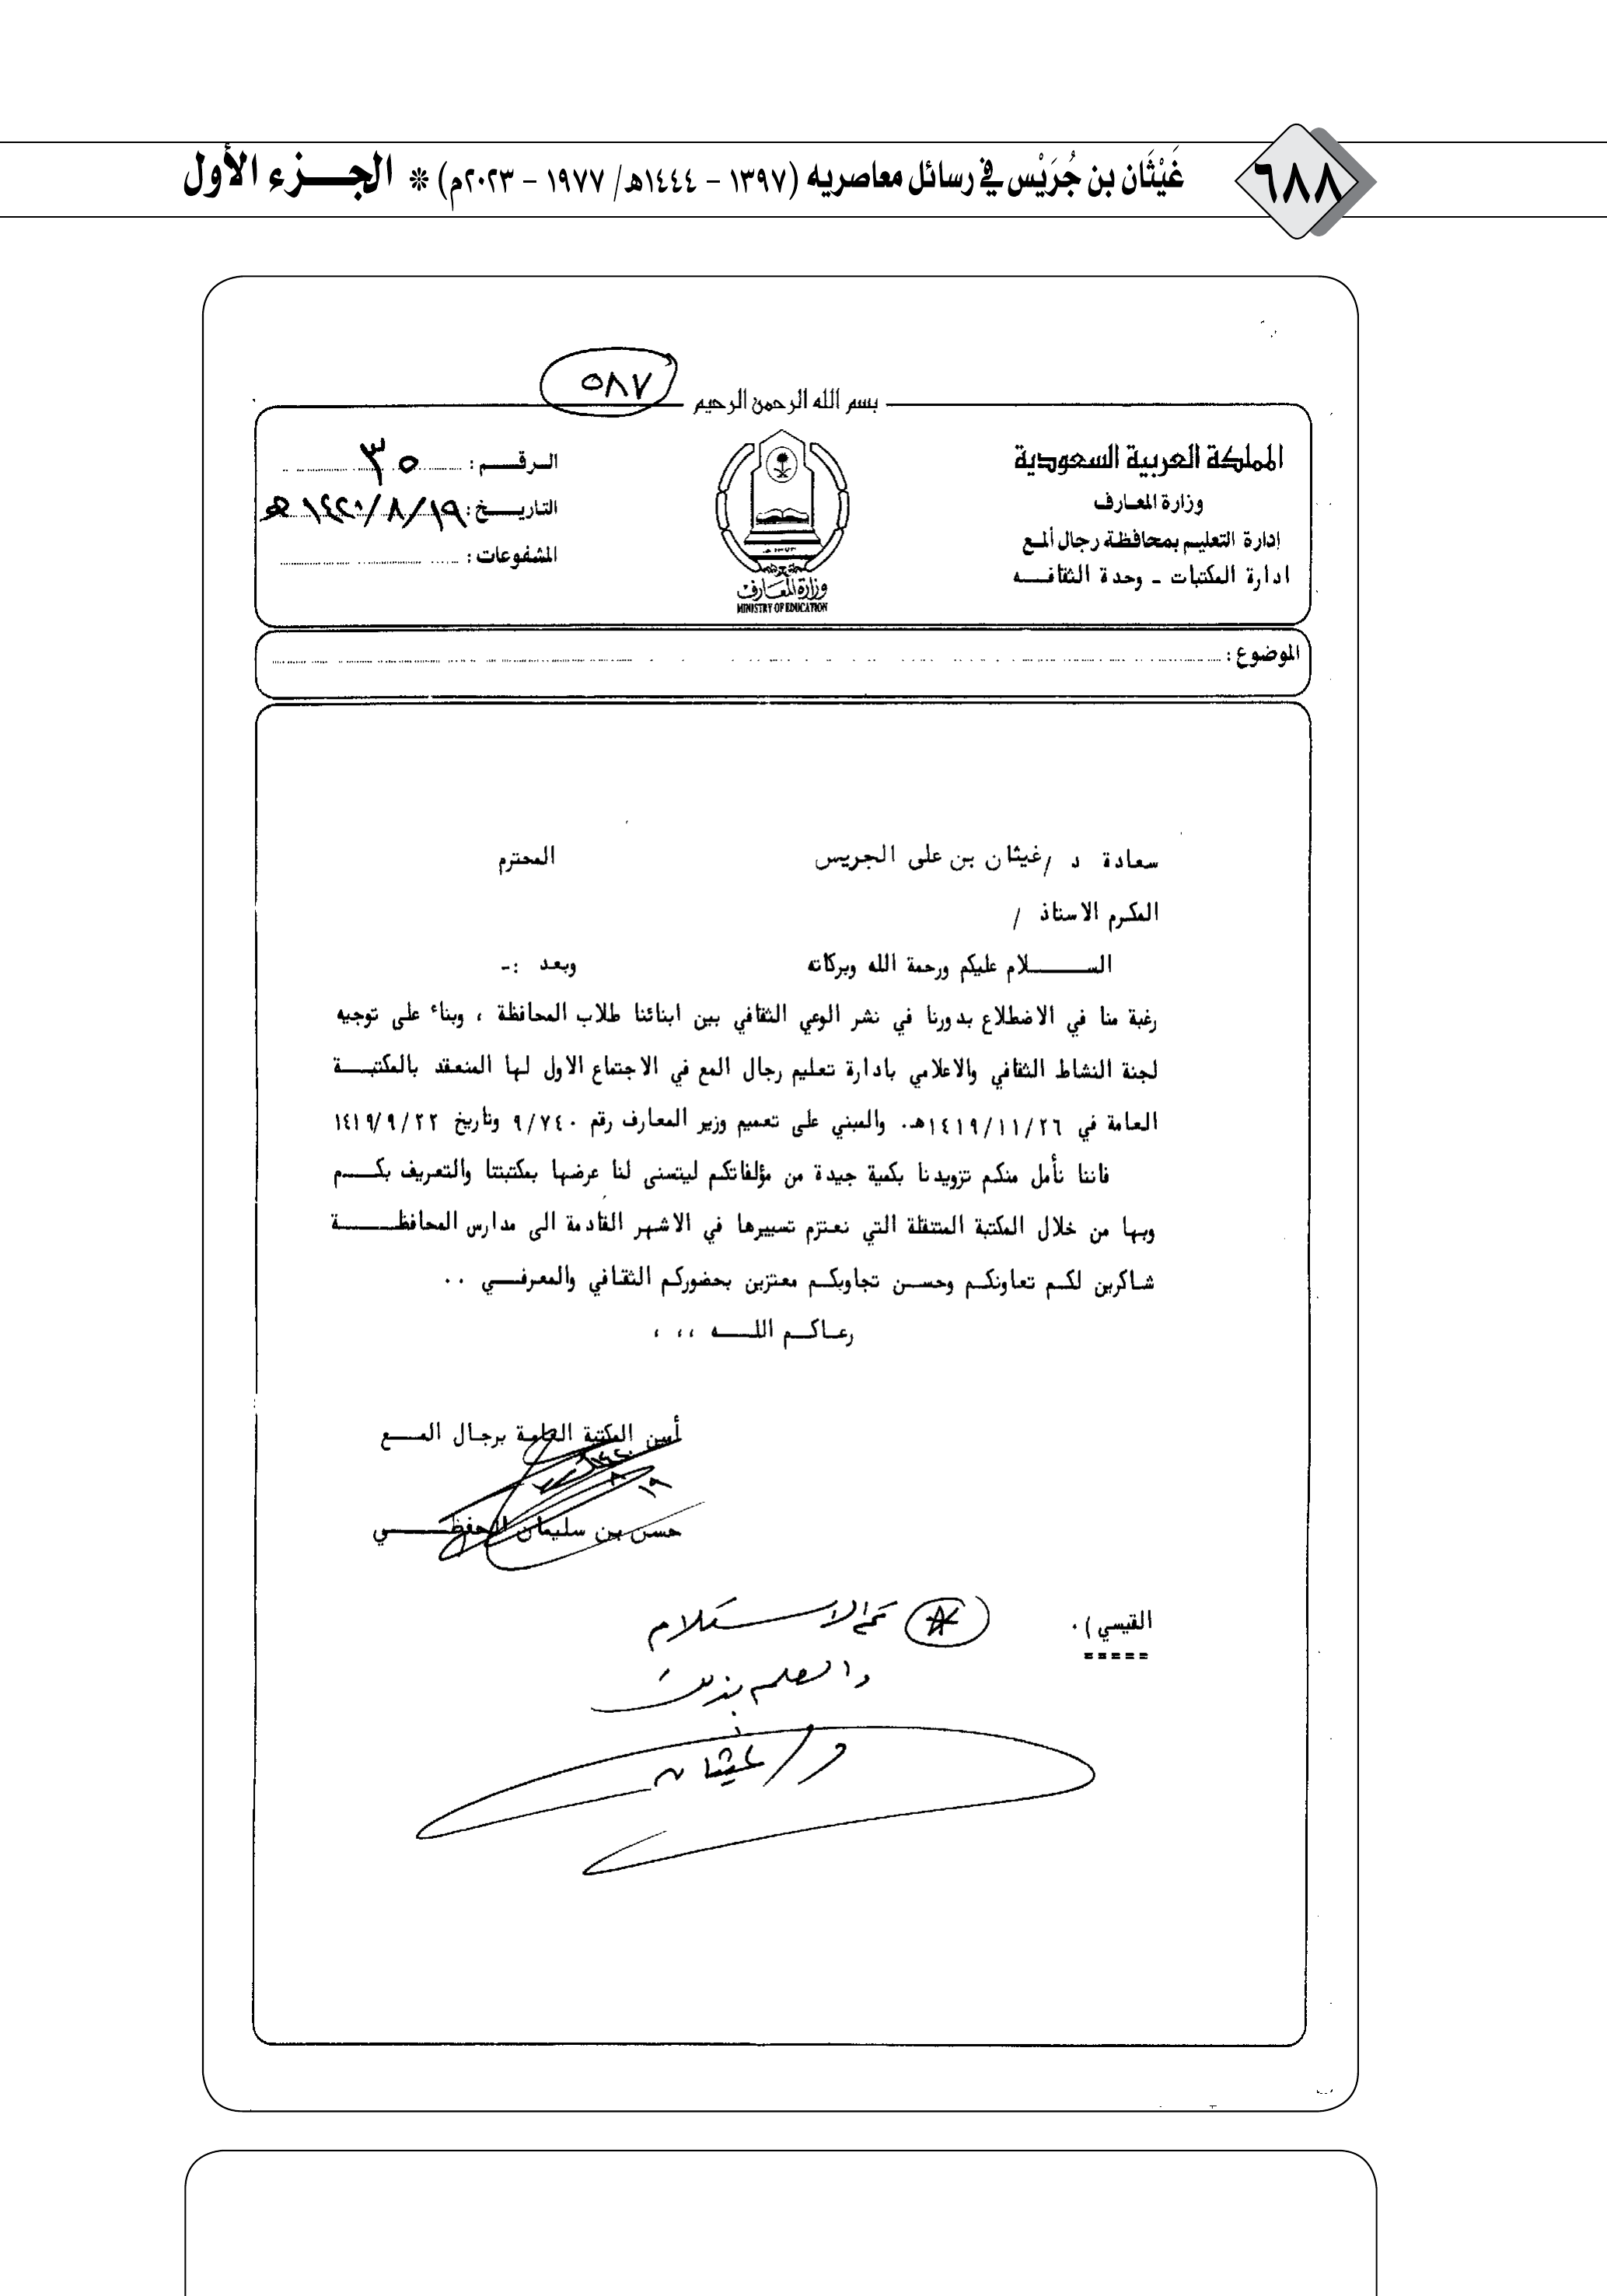 ٦٨٨
غَيْثَان بن جُرَيْس في رسائل معاصريه (١٣٩٧ - ١٤٤٤هـ/ ١٩٧٧ - ٢٠٢٣م) * الجـــزء الأول
٥٨٧
بسم الله الرحمن الرحيم
المملكة العربية السعودية
وزارة المعـارف
إدارة التعليـم بمحافظة رجال ألمـع
ادارة المكتبات - وحدة الثقافــه
وزارة المعارف
MINISTRY OF EDUCATION
الـرقــم : ٣٥
التاريــخ : ١٤٢٠/٨/١٩ هـ
المشفوعات :
الموضوع :
سعادة د /غيثان بن على الجريس المحترم
المكرم الاستاذ /
الســــلام عليكم ورحمة الله وبركاته وبعد :-
رغبة منا في الاضطلاع بدورنا في نشر الوعي الثقافي بين ابنائنا طلاب المحافظة ، وبناء على توجيه
لجنة النشاط الثقافي والاعلامي بادارة تعليم رجال المع في الاجتماع الاول لها المنعقد بالمكتبـــة
العامة في ١٤١٩/١١/٢٦هـ. والمبني على تعميم وزير المعارف رقم ٩/٧٤٠ وتاريخ ١٤١٩/٩/٢٢
فاننا نأمل منكم تزويدنا بكمية جيدة من مؤلفاتكم ليتسنى لنا عرضها بمكتبتنا والتعريف بكـــم
وبها من خلال المكتبة المتنقلة التي نعتزم تسييرها في الاشهر القادمة الى مدارس المحافظـــــة
شاكرين لكم تعاونكم وحسن تجاوبكم معتزين بحضوركم الثقافي والمعرفــي ..
رعـاكـم اللـــه ،، ،
أمين المكتبة العامة برجال المـــع
١٩
حسن بن سليمان الحفظــــي
القيسي ) .
=====
تم الاستلام
والعلم بذلك
د/ غيثان